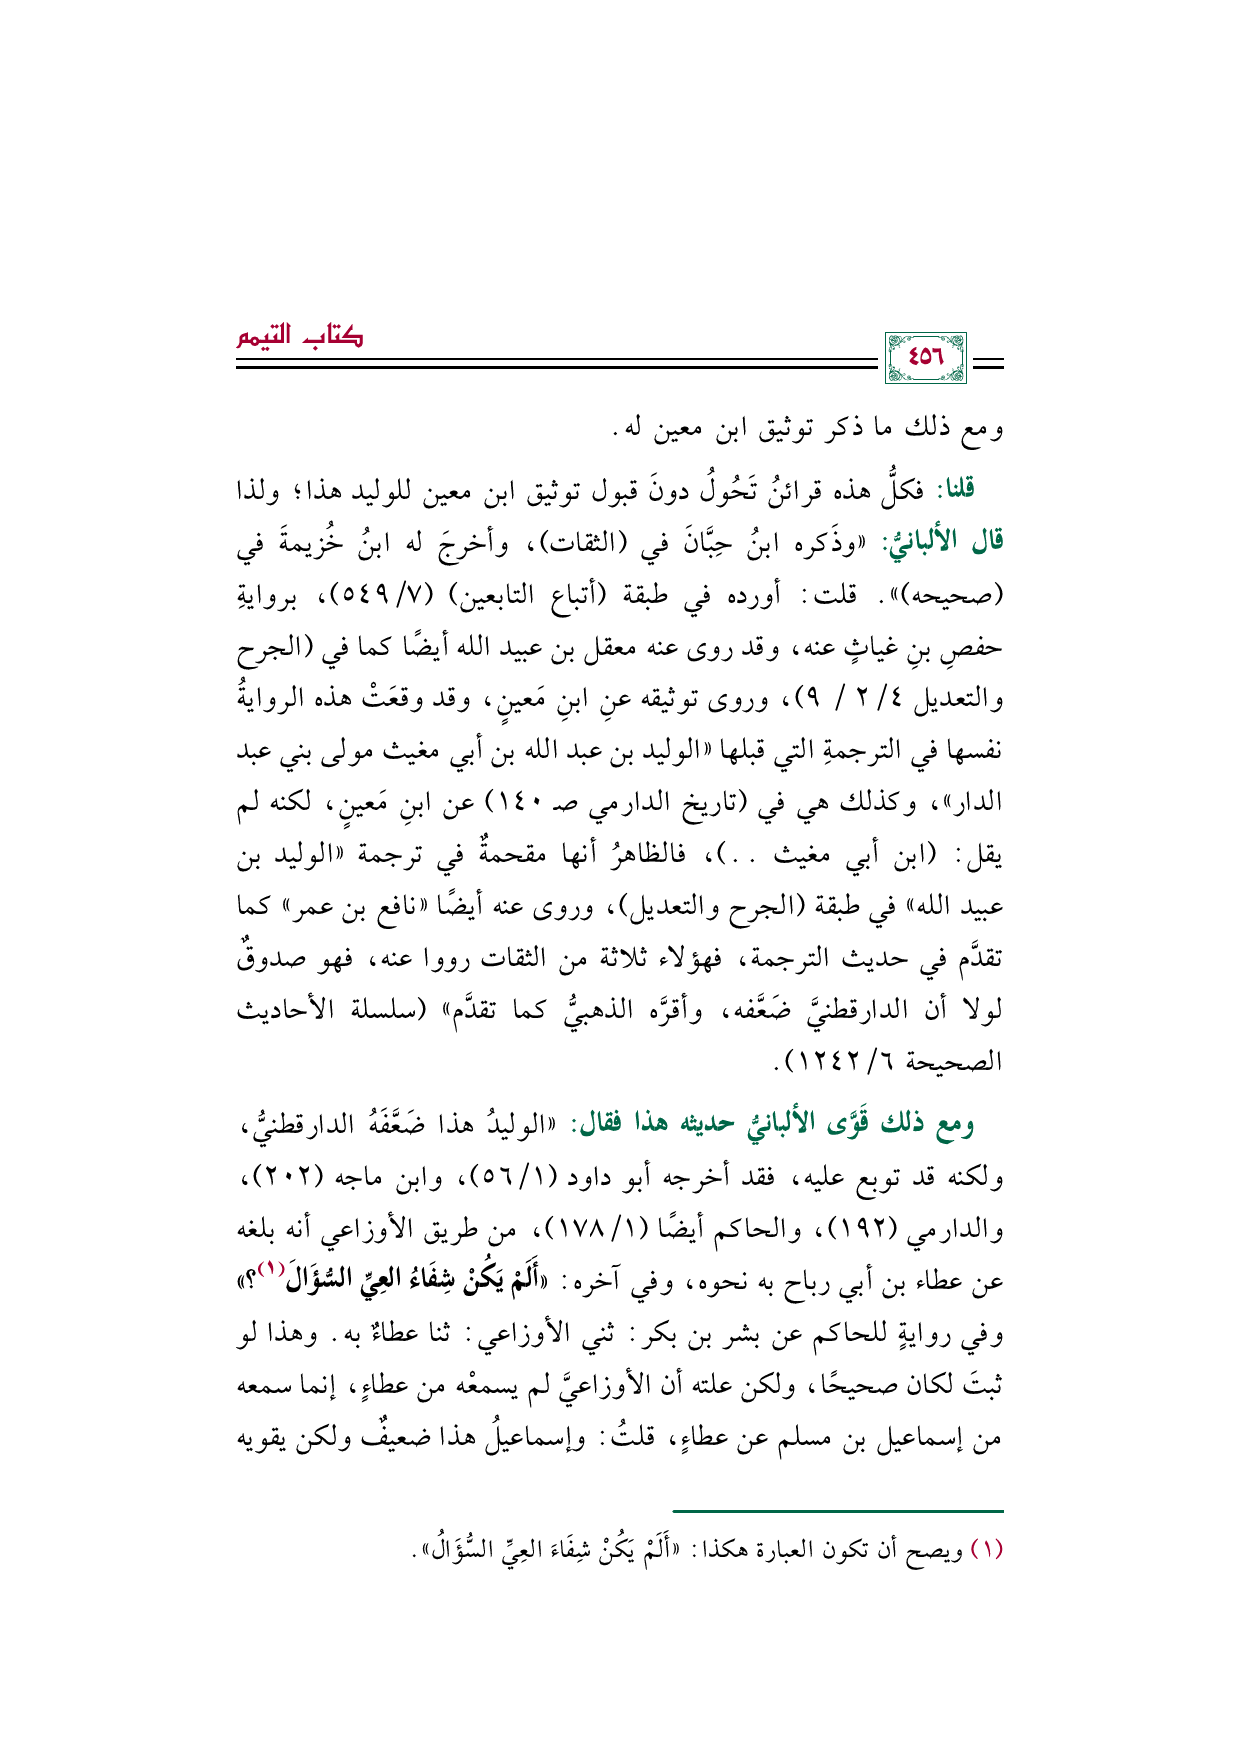 كتاب التيمم
٤٥٦
ومع ذلك ما ذكر توثيق ابن معين له.
قلنا: فكلُّ هذه قرائنُ تَحُولُ دونَ قبول توثيق ابن معين للوليد هذا؛ ولذا
قال الألبانيُّ: «وذَكره ابنُ حِبَّانَ في (الثقات)، وأخرجَ له ابنُ خُزيمةَ في
(صحيحه)». قلت: أورده في طبقة (أتباع التابعين) (٧/ ٥٤٩)، بروايةِ
حفصِ بنِ غياثٍ عنه، وقد روى عنه معقل بن عبيد الله أيضًا كما في (الجرح
والتعديل ٤/ ٢ / ٩)، وروى توثيقه عنِ ابنِ مَعينٍ، وقد وقعَتْ هذه الروايةُ
نفسها في الترجمةِ التي قبلها «الوليد بن عبد الله بن أبي مغيث مولى بني عبد
الدار»، وكذلك هي في (تاريخ الدارمي صـ ١٤٠) عن ابنِ مَعينٍ، لكنه لم
يقل: (ابن أبي مغيث ..)، فالظاهرُ أنها مقحمةٌ في ترجمة «الوليد بن
عبيد الله» في طبقة (الجرح والتعديل)، وروى عنه أيضًا «نافع بن عمر» كما
تقدَّم في حديث الترجمة، فهؤلاء ثلاثة من الثقات رووا عنه، فهو صدوقٌ
لولا أن الدارقطنيَّ ضَعَّفه، وأقرَّه الذهبيُّ كما تقدَّم» (سلسلة الأحاديث
الصحيحة ٦/ ١٢٤٢).
ومع ذلك قَوَّى الألبانيُّ حديثه هذا فقال: «الوليدُ هذا ضَعَّفَهُ الدارقطنيُّ،
ولكنه قد توبع عليه، فقد أخرجه أبو داود (١/ ٥٦)، وابن ماجه (٢٠٢)،
والدارمي (١٩٢)، والحاكم أيضًا (١/ ١٧٨)، من طريق الأوزاعي أنه بلغه
عن عطاء بن أبي رباح به نحوه، وفي آخره: «أَلَمْ يَكُنْ شِفَاءُ العِيِّ السُّؤَالَ(١)؟»
وفي روايةٍ للحاكم عن بشر بن بكر: ثني الأوزاعي: ثنا عطاءٌ به. وهذا لو
ثبتَ لكان صحيحًا، ولكن علته أن الأوزاعيَّ لم يسمعْه من عطاءٍ، إنما سمعه
من إسماعيل بن مسلم عن عطاءٍ، قلتُ: وإسماعيلُ هذا ضعيفٌ ولكن يقويه
(١) ويصح أن تكون العبارة هكذا: «أَلَمْ يَكُنْ شِفَاءَ العِيِّ السُّؤَالُ».